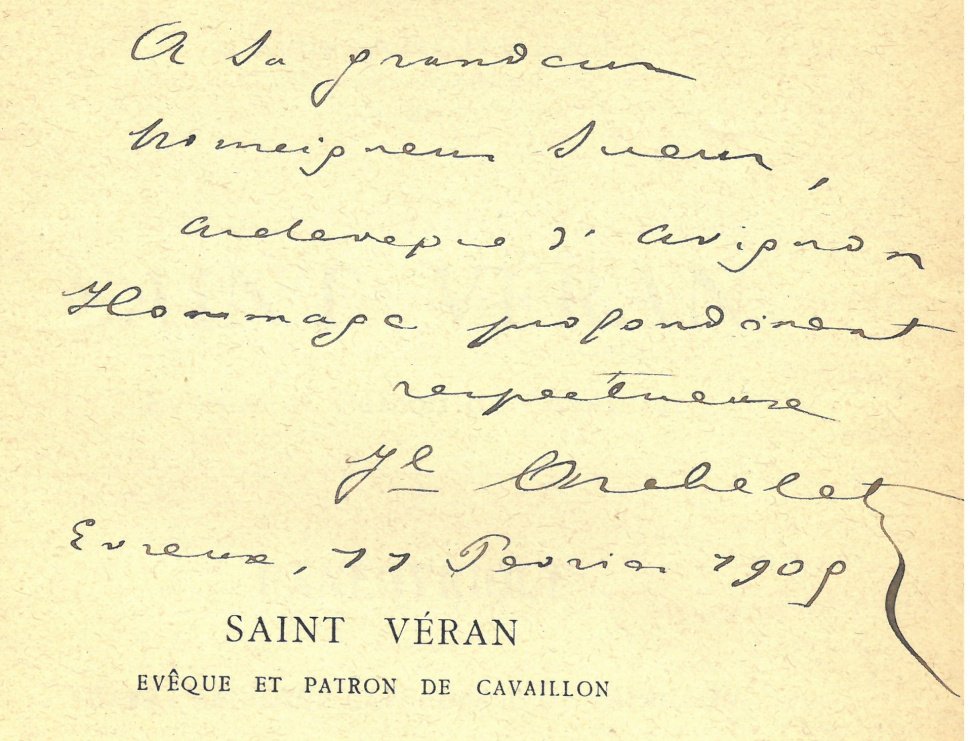 A Sa grandeur
Monseigneur Sueur,
archeveque d'Avignon
Hommage profondement
respectueux
Evreux, 11 Fevrier
SAINT VÉRAN
EVÊQUE ET PATRON DE CAVAILLON